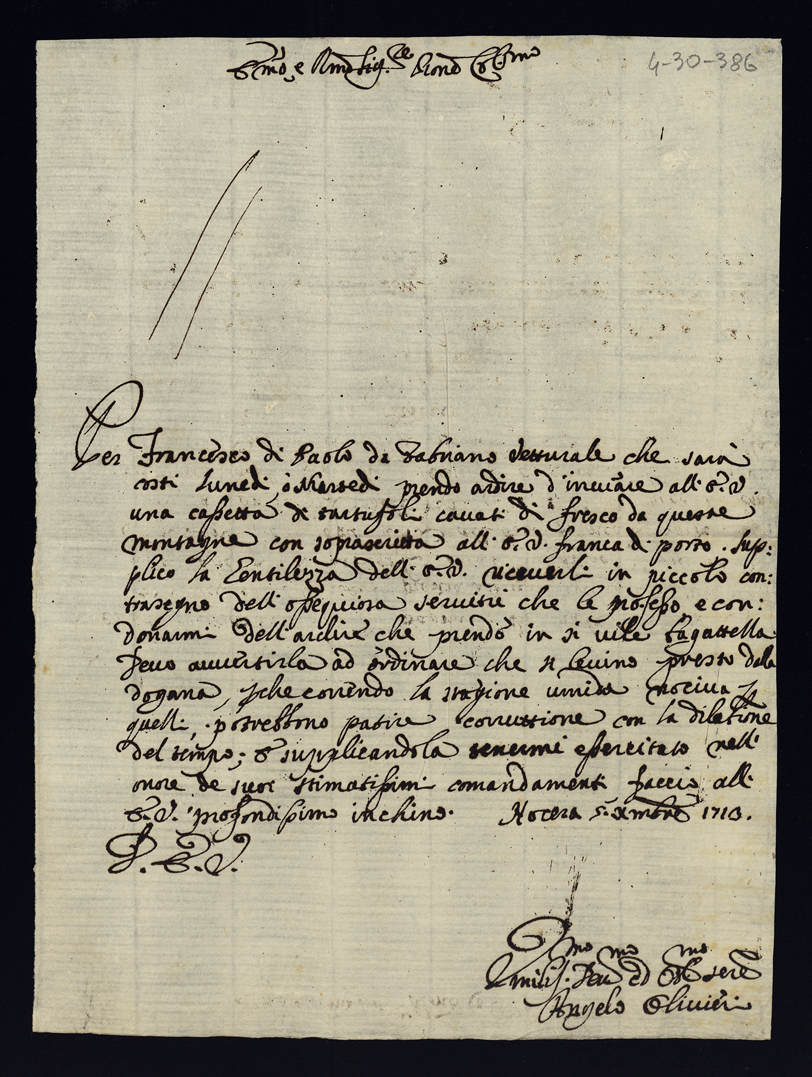 E.mo, e R.mo Sig.re Pron Col.mo
4-30-386
1
Per Francesco di Paolo da Fabriano Vetturale che sarà
costì lunedì, ò Martedì prendo ardire d'inviare all' E. V.
una cassetta di tartuffoli cavati di fresco da queste
montagne con soprascritta all' E. V. franca di porto. Sup:
plico la Gentilezza dell' E. V. riceverli in piccolo con:
trasegno dell' ossequiosa servitù che le professo, e con:
donarmi dell' ardire che prendo in sì vile bagattella
Devo avvertirla ad ordinare che si levino presto dalla
dogana, p che correndo la stagione umida nociva p
quelli, potrebbono patire corruttione con la dilatione
del tempo; E supplicandola tenermi essercitato nell'
onore de suoi stimatissimi comandamenti faccio all'
E. V. profondissimo inchino. Nocera 5. Xmbre 1713.
D. E. V.
Umilis.mo Dev.mo ed Obl.mo sere
Angelo Olivieri